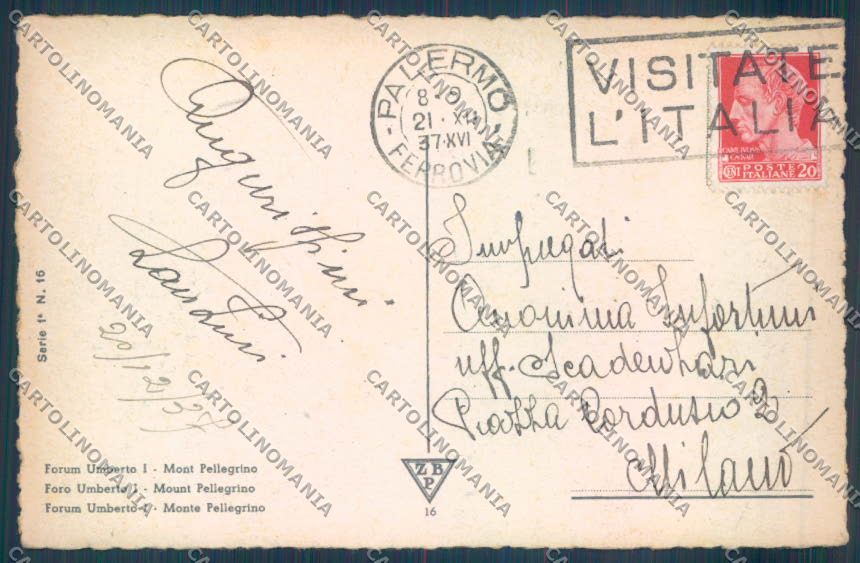 PALERMO
8-9
21 · XII
37·XVI
FERROVIA
VISITATE
L'ITALIA
POSTE
ITALIANE
CENT
20
Augurissimi
20/12/37
Impiegati
Anonima Infortuni
uff. Scadenzari
Piazza Cordusio 2
Milano
Serie 1ª N. 16
Forum Umberto I - Mont Pellegrino
Foro Umberto I - Mount Pellegrino
Forum Umberto I - Monte Pellegrino
Z B
P
16
CARTOLINOMANIA